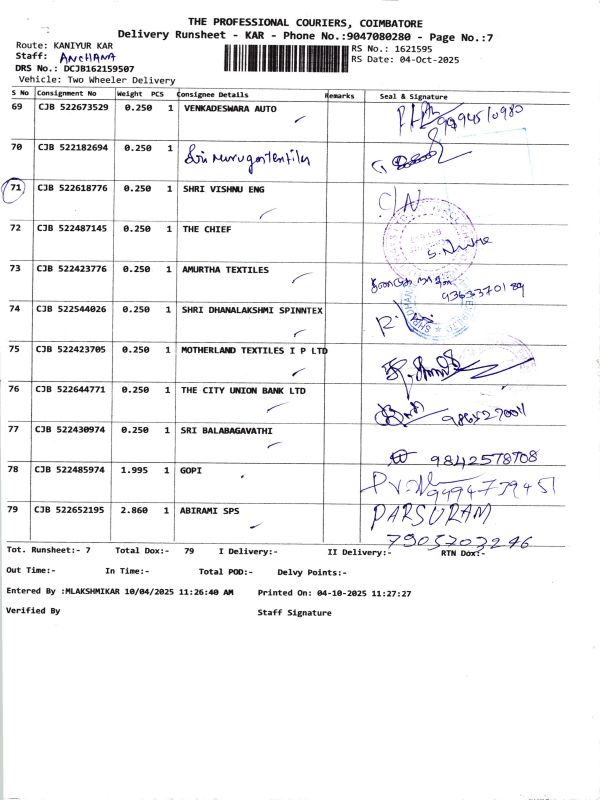 THE PROFESSIONAL COURIERS, COIMBATORE
Delivery Runsheet - KAR - Phone No.:9047080280 - Page No.:7
Route: KANIYUR KAR
RS No.: 1621595
Staff: ANCHANA
RS Date: 04-Oct-2025
DRS No.: DCJB162159507
Vehicle: Two Wheeler Delivery
S No Consignment No Weight PCS Consignee Details Remarks Seal & Signature
69 CJB 522673529 0.250 1 VENKADESWARA AUTO
70 CJB 522182694 0.250 1
71 CJB 522618776 0.250 1 SHRI VISHNU ENG
72 CJB 522487145 0.250 1 THE CHIEF
73 CJB 522423776 0.250 1 AMURTHA TEXTILES
9363370189
74 CJB 522544026 0.250 1 SHRI DHANALAKSHMI SPINNTEX
75 CJB 522423705 0.250 1 MOTHERLAND TEXTILES I P LTD
76 CJB 522644771 0.250 1 THE CITY UNION BANK LTD
77 CJB 522430974 0.250 1 SRI BALABAGAVATHI
9842578708
78 CJB 522485974 1.995 1 GOPI
79 CJB 522652195 2.860 1 ABIRAMI SPS PARSURAM
7905703246
Tot. Runsheet:- 7 Total Dox:- 79 I Delivery:- II Delivery:- RTN Dox:-
Out Time:- In Time:- Total POD:- Delvy Points:-
Entered By :MLAKSHMIKAR 10/04/2025 11:26:40 AM Printed On: 04-10-2025 11:27:27
Verified By Staff Signature